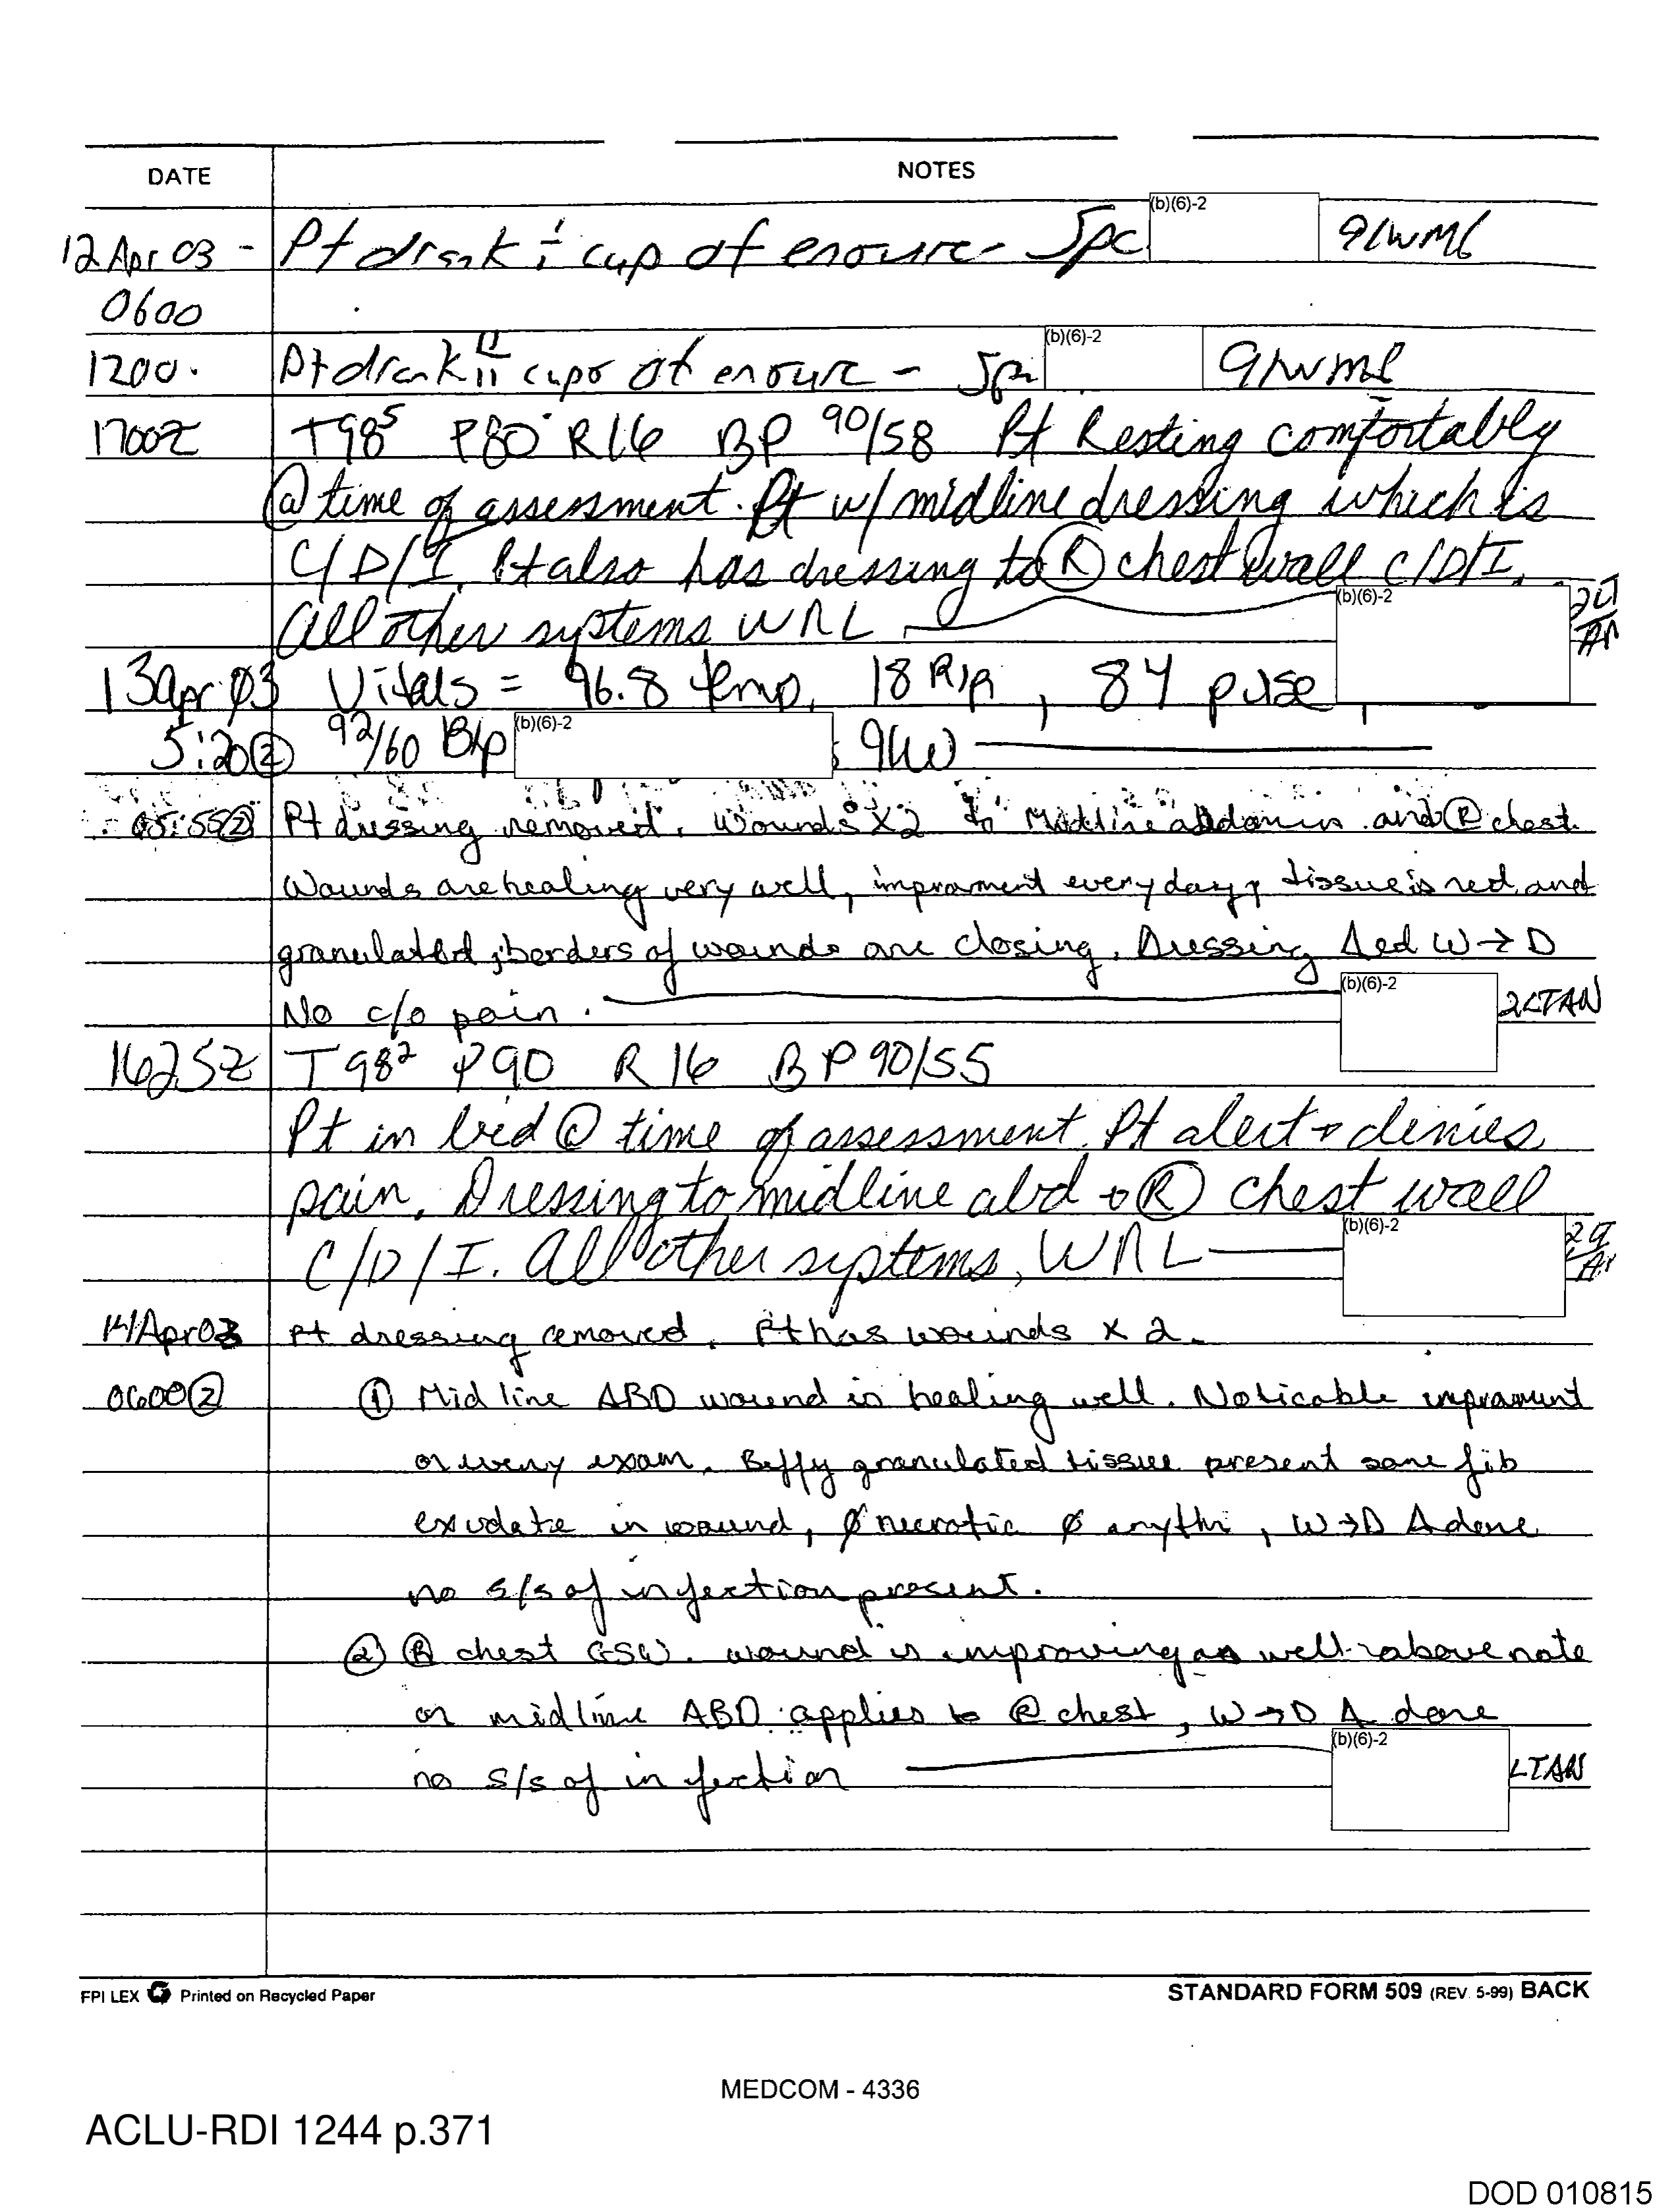 DATE NOTES
12 Apr 03 - Pt drank i cup of ensure - Spc (b)(6)-2 91WM6
0600
1200. Pt drank ii cups of ensure - Spc (b)(6)-2 91WM6
1700Z T98⁵ P80 R16 BP 90/58 Pt Resting comfortably
@ time of assessment. Pt w/ midline dressing which is
C/D/I. Pt also has dressing to Ⓡ chest wall C/D/I.
All other systems WNL (b)(6)-2 2LT AN
13 Apr 03 Vitals = 96.8 temp, 18 R, 84 pulse,
5:20Ⓩ 92/60 B/p (b)(6)-2 91W
05:55Ⓩ Pt dressing removed. Wounds x2 to Midline abdomin and Ⓡ chest.
Wounds are healing very well, improment every day, tissue is red and
granulated; borders of wounds are closing. Dressing Δed W→D
No c/o pain. (b)(6)-2 2LTAN
1625Z T98² P90 R16 BP 90/55
Pt in bed @ time of assessment. Pt alert + denies
pain. Dressing to midline abd + Ⓡ chest wall
C/D/I. All other systems, WNL (b)(6)-2 2LT AN
14 Apr 03 Pt dressing removed. Pt has wounds x 2.
0600Ⓩ ① Mid line ABD wound is healing well. Noticable imprament
on every exam. Beffy granulated tissue present some fib
exudate in wound, Ø necrotic Ø erythe, W→D Δ done
no s/s of infection present.
② Ⓡ chest GSW. wound is improving as well - above note
on midline ABD applies to Ⓡ chest, W→D Δ done
no s/s of infection (b)(6)-2 LTAN
FPI LEX Printed on Recycled Paper STANDARD FORM 509 (REV. 5-99) BACK
MEDCOM - 4336
ACLU-RDI 1244 p.371
DOD 010815